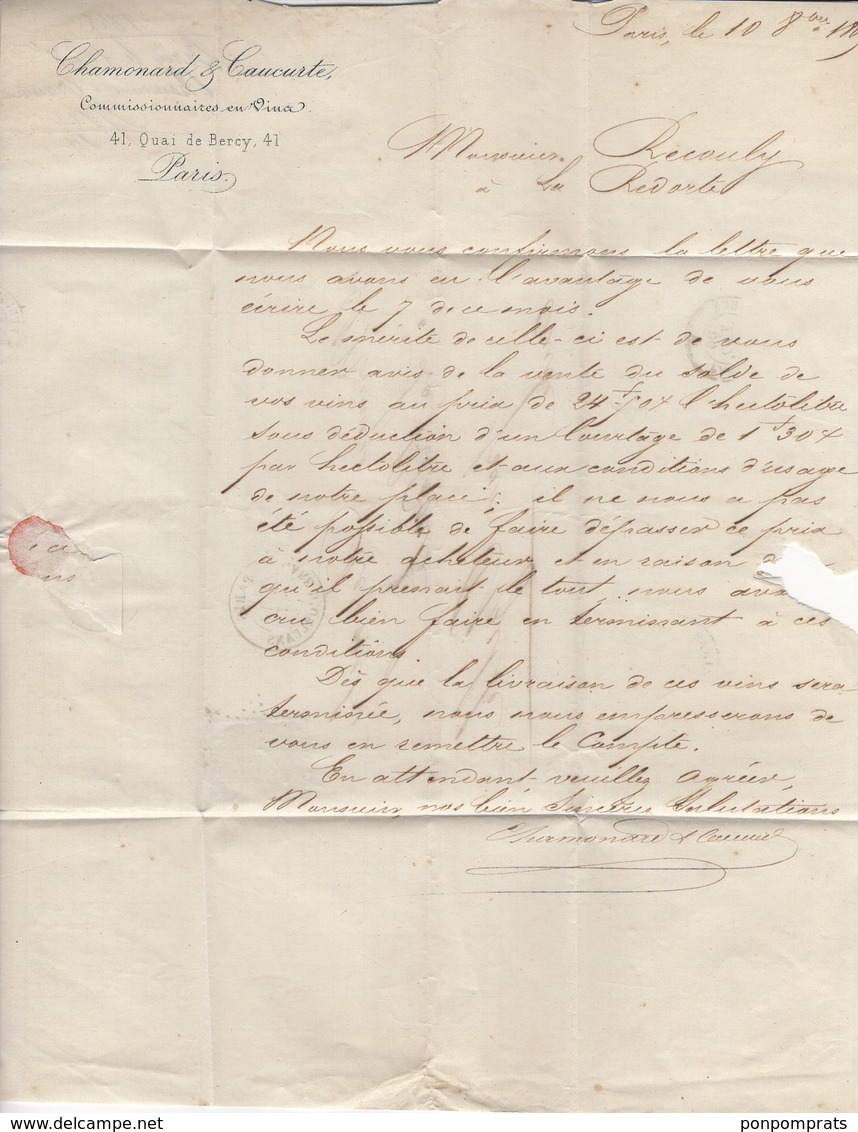 Paris, le 10 8bre 18
Chamonard & Caucurte,
Commissionnaires en Vins
41, Quai de Bercy, 41
Paris
Monsieur Recouly
à La Redorte
Nous vous confirmons la lettre que
nous avons eu l'avantage de vous
écrire le 7 de ce mois.
Le mérite de celle-ci est de vous
donner avis de la vente du solde de
vos vins au prix de 24f 70 l'hectolitre
sous déduction d'un Courtage de 1f 30
par hectolitre et aux conditions d'usage
de notre place; il ne nous a pas
été possible de faire dépasser ce prix
à notre acheteur et en raison
qu'il prenait le tout nous
cru bien faire en terminant à ces
conditions
Dès que la livraison de ces vins sera
terminée, nous nous empresserons de
vous en remettre le Compte.
En attendant veuillez agréer,
Monsieur, nos bien Sincères Salutations
Chamonard & Caucurte
delcampe.net
ponpomprats